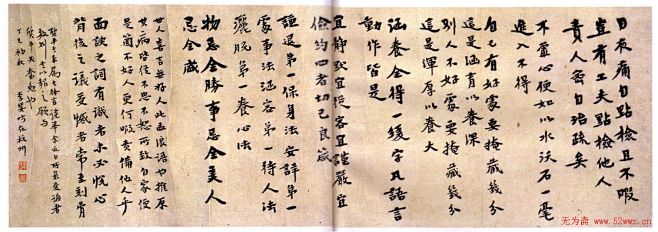 日夜痛自點檢且不暇
豈有工夫點檢他人
責人密自治疏矣
不虛心便如以水沃石一毫
進入不得
自己有好處要掩藏幾分
這是涵育以養深
別人不好處要掩藏幾分
這是渾厚以養大
涵養全得一緩字凡語言
動作皆是
宜靜默宜從容宜謹嚴宜
儉約四者切己良箴
謙退第一保身法安詳第一
處事法涵容第一待人法
灑脫第一養心法
物忌全勝事忌全美人
忌全盛
世人喜言無好人此孟浪語也推原
其病皆從不忠不恕所致自家便
是箇不好人更何暇責備他人乎
面諛之詞有識者未必悅心
背後之議受憾者常至刻骨
丁巳初秋
無為齋 www.52wwz.cn